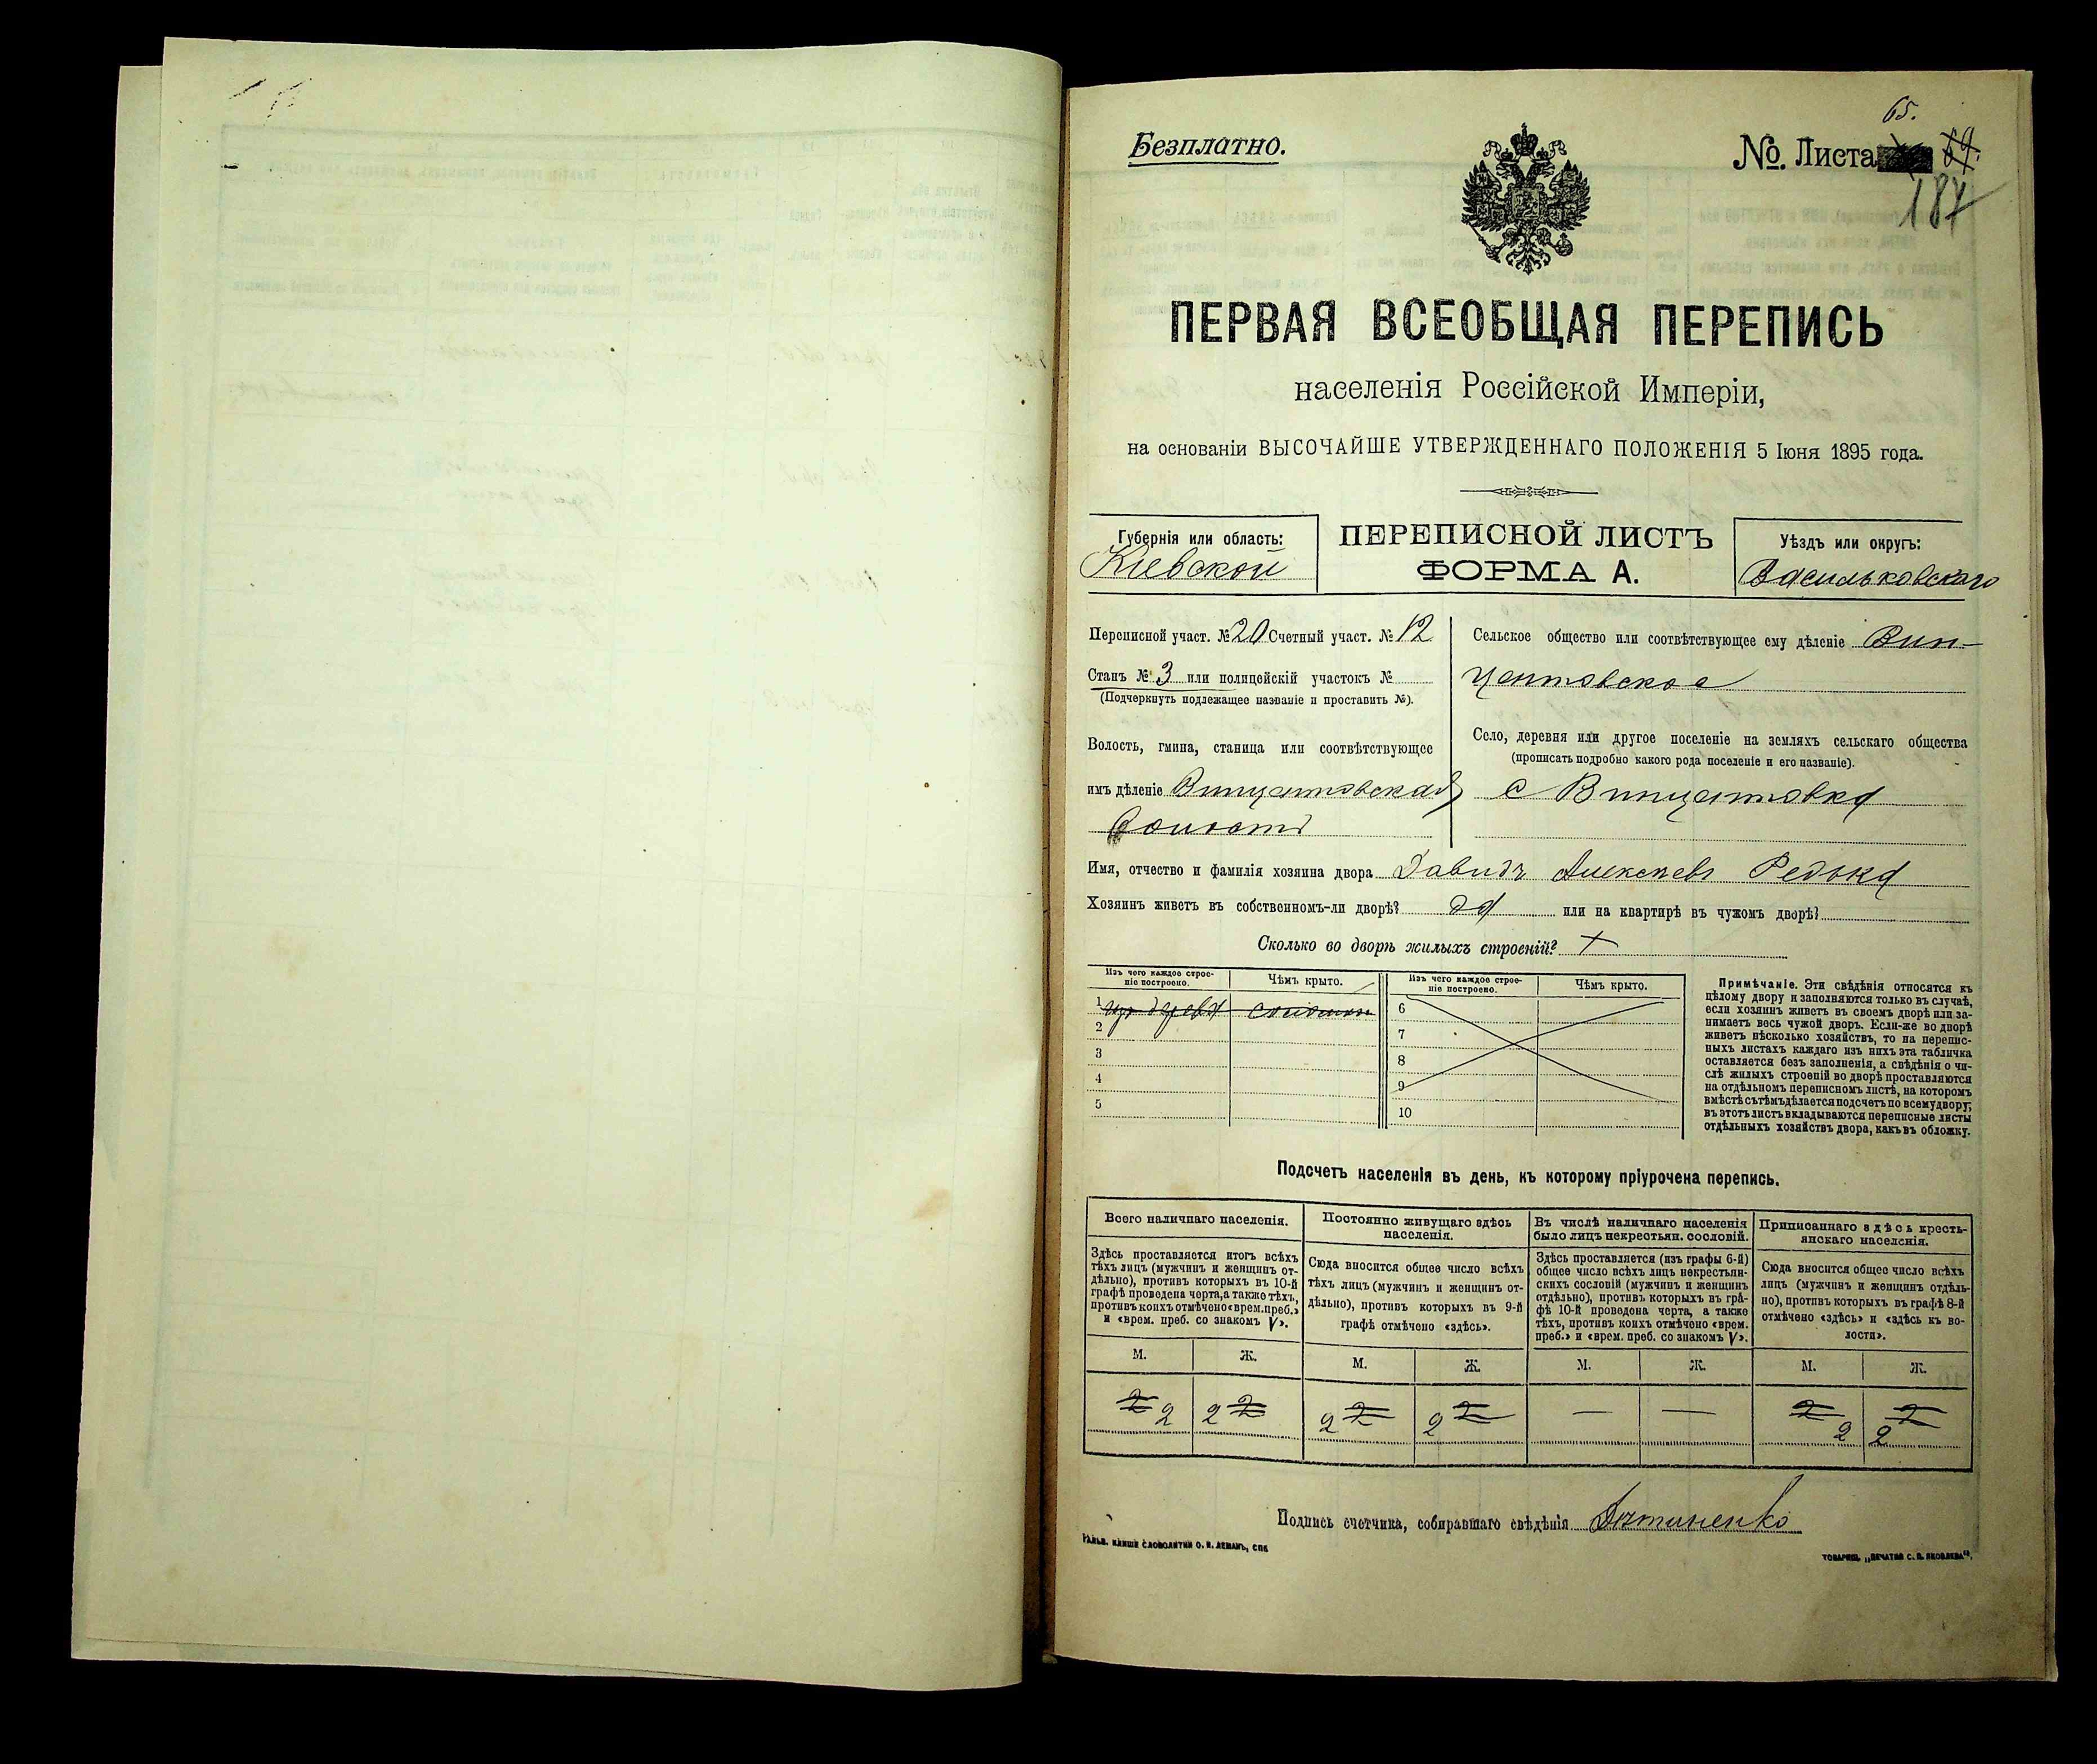 65.
Безплатно.
№ Листа 64.
187
ПЕРВАЯ ВСЕОБЩАЯ ПЕРЕПИСЬ
населенія Россійской Имперіи,
на основаніи ВЫСОЧАЙШЕ УТВЕРЖДЕННАГО ПОЛОЖЕНІЯ 5 Іюня 1895 года.
Губернія или область:
Кіевской
ПЕРЕПИСНОЙ ЛИСТЪ
ФОРМА А.
Уѣздъ или округъ:
Васильковскаго
Переписной участ. № 20 Счетный участ. № 12
Станъ № 3 или полицейскій участокъ №
(Подчеркнуть подлежащее названіе и проставить №).
Волость, гмина, станица или соотвѣтствующее
имъ дѣленіе Винцентовская
волость
Сельское общество или соотвѣтствующее ему дѣленіе Вин-
центовское
Село, деревня или другое поселеніе на земляхъ сельскаго общества
(прописать подробно какого рода поселеніе и его названіе).
с Винцентовка
Имя, отчество и фамилія хозяина двора Давидъ Алексѣевъ Редька
Хозяинъ живетъ въ собственномъ-ли дворѣ? да или на квартирѣ въ чужомъ дворѣ?
Сколько во дворѣ жилыхъ строеній?
Изъ чего каждое строе-
ніе построено.
Чѣмъ крыто.
1 изъ дерева соломою
2
3
4
5
Изъ чего каждое строе-
ніе построено.
Чѣмъ крыто.
6
7
8
9
10
Примѣчаніе. Эти свѣдѣнія относятся къ
цѣлому двору и заполняются только въ случаѣ,
если хозяинъ живетъ въ своемъ дворѣ или за-
нимаетъ весь чужой дворъ. Если-же во дворѣ
живетъ нѣсколько хозяйствъ, то на перепис-
ныхъ листахъ каждаго изъ нихъ эта табличка
оставляется безъ заполненія, а свѣдѣнія о чи-
слѣ жилыхъ строеній во дворѣ проставляются
на отдѣльномъ переписномъ листѣ, на которомъ
вмѣстѣ съ тѣмъ дѣлается подсчетъ по всему двору;
въ этотъ листъ вкладываются переписные листы
отдѣльныхъ хозяйствъ двора, какъ въ обложку.
Подсчетъ населенія въ день, къ которому пріурочена перепись.
Всего наличнаго населенія.
Здѣсь проставляется итогъ всѣхъ
тѣхъ лицъ (мужчинъ и женщинъ от-
дѣльно), противъ которыхъ въ 10-й
графѣ проведена черта, а также тѣхъ,
противъ коихъ отмѣчено «врем. преб.»
и «врем. преб. со знакомъ V».
М. Ж.
2 2 2 2
Постоянно живущаго здѣсь
населенія.
Сюда вносится общее число всѣхъ
тѣхъ лицъ (мужчинъ и женщинъ от-
дѣльно), противъ которыхъ въ 9-й
графѣ отмѣчено «здѣсь».
М. Ж.
2 2 2 2
Въ числѣ наличнаго населенія
было лицъ некрестьян. сословій.
Здѣсь проставляется (изъ графы 6-й)
общее число всѣхъ лицъ некрестьян-
скихъ сословій (мужчинъ и женщинъ
отдѣльно), противъ которыхъ въ гра-
фѣ 10-й проведена черта, а также
тѣхъ, противъ коихъ отмѣчено «врем.
преб.» и «врем. преб. со знакомъ V».
М. Ж.
— —
Приписаннаго здѣсь кресть-
янскаго населенія.
Сюда вносится общее число всѣхъ
лицъ (мужчинъ и женщинъ отдѣль-
но), противъ которыхъ въ графѣ 8-й
отмѣчено «здѣсь» и «здѣсь къ во-
лости».
М. Ж.
2 2 2 2
Подпись счетчика, собиравшаго свѣдѣнія
ГАЛЬВ. КЛИШЕ СЛОВОЛИТНИ О. И. ЛЕМАНЪ, СПБ
ТОВАРИЩ. „ПЕЧАТНЯ С. П. ЯКОВЛЕВА".